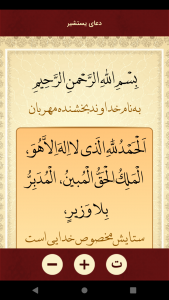 دعای یستشیر
بِسْمِ اللهِ الرَّحْمنِ الرَّحیمِ
به نام خداوند بخشنده مهربان
اَلْحَمْدُ لِلّهِ الَّذی لا اِلهَ اِلاَّ هُوَ،
الْمَلِكُ الْحَقُّ الْمُبینُ، الْمُدَبِّرُ
بِلا وَزیرٍ،
ستایش مخصوص خدایی است
− + ت